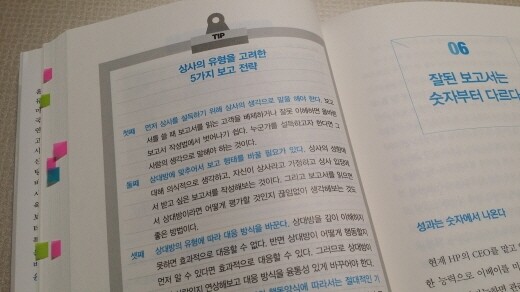 TIP
상사의 유형을 고려한
5가지 보고 전략
첫째 먼저 상사를 설득하기 위해 상사의 생각으로 말을 해야 한다. 보고
서를 쓸 때 보고서를 읽는 고객을 배제하거나 잘못 이해하면 올바른
보고서 작성법에서 벗어나기 쉽다. 누군가를 설득하고자 한다면 그
사람의 생각으로 말해야 하는 것이다.
둘째 상대방에 맞추어서 보고 형태를 바꿀 필요가 있다. 상사의 성향에
대해 의식적으로 생각하고, 자신이 상사라고 가정하고 상사 입장에
서 받고 싶은 보고서를 작성해보는 것이다. 그리고 보고서를 읽으면
서 상대방이라면 어떻게 평가할 것인지 끊임없이 생각해보는 것도
좋은 방법이다.
셋째 상대방의 유형에 따라 대응 방식을 바꾼다. 상대방을 깊이 이해하지
못하면 효과적으로 대응할 수 없다. 반면 상대방이 어떻게 행동할지
먼저 알 수 있다면 효과적으로 대응할 수 있다. 그러므로 상대방이
연상해보고 대응 방식을 융통성 있게 바꾸어야 한다.
행동양식에 따라서는 절대적인
06
잘된 보고서는
숫자부터 다르다
성과는 숫자에서 나온다
현재 HP의 CEO를 맡고
한 능력으로 이베이를